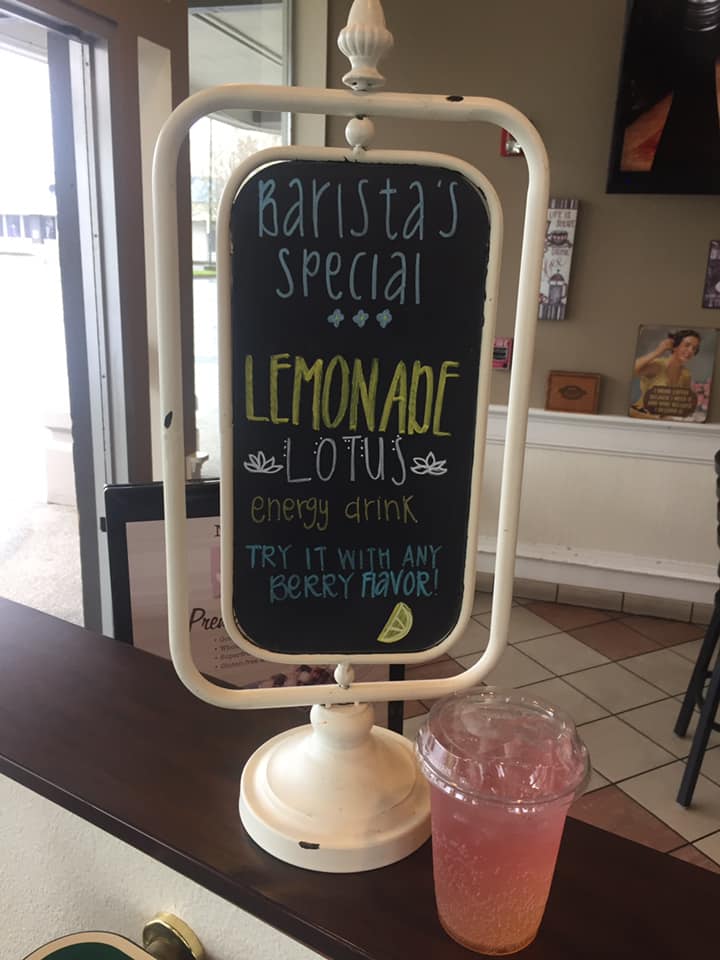 Barista's
Special
LEMONADE
LOTUS
energy drink
TRY IT WITH ANY
BERRY FLAVOR!
LIFE IS
SHORT